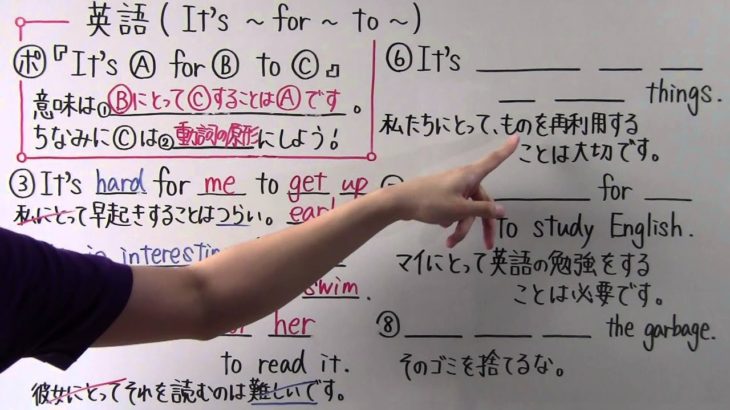 英語 ( It's ~ for ~ to ~ )
ポ『It's Ⓐ for Ⓑ to Ⓒ』
意味は①ⒷにとってⒸすることはⒶです。
ちなみにⒸは②動詞の原形にしよう!
③ It's hard for me to get up
私にとって早起きすることはつらい。
is interesting
swim.
her
to read it.
彼女にとってそれを読むのは難しいです。
⑥ It's ____ __ __
__ ____ things.
私たちにとって、ものを再利用する
ことは大切です。
____ for __
to study English.
マイにとって英語の勉強をする
ことは必要です。
⑧ ___ ___ ___ the garbage.
そのゴミを捨てるな。